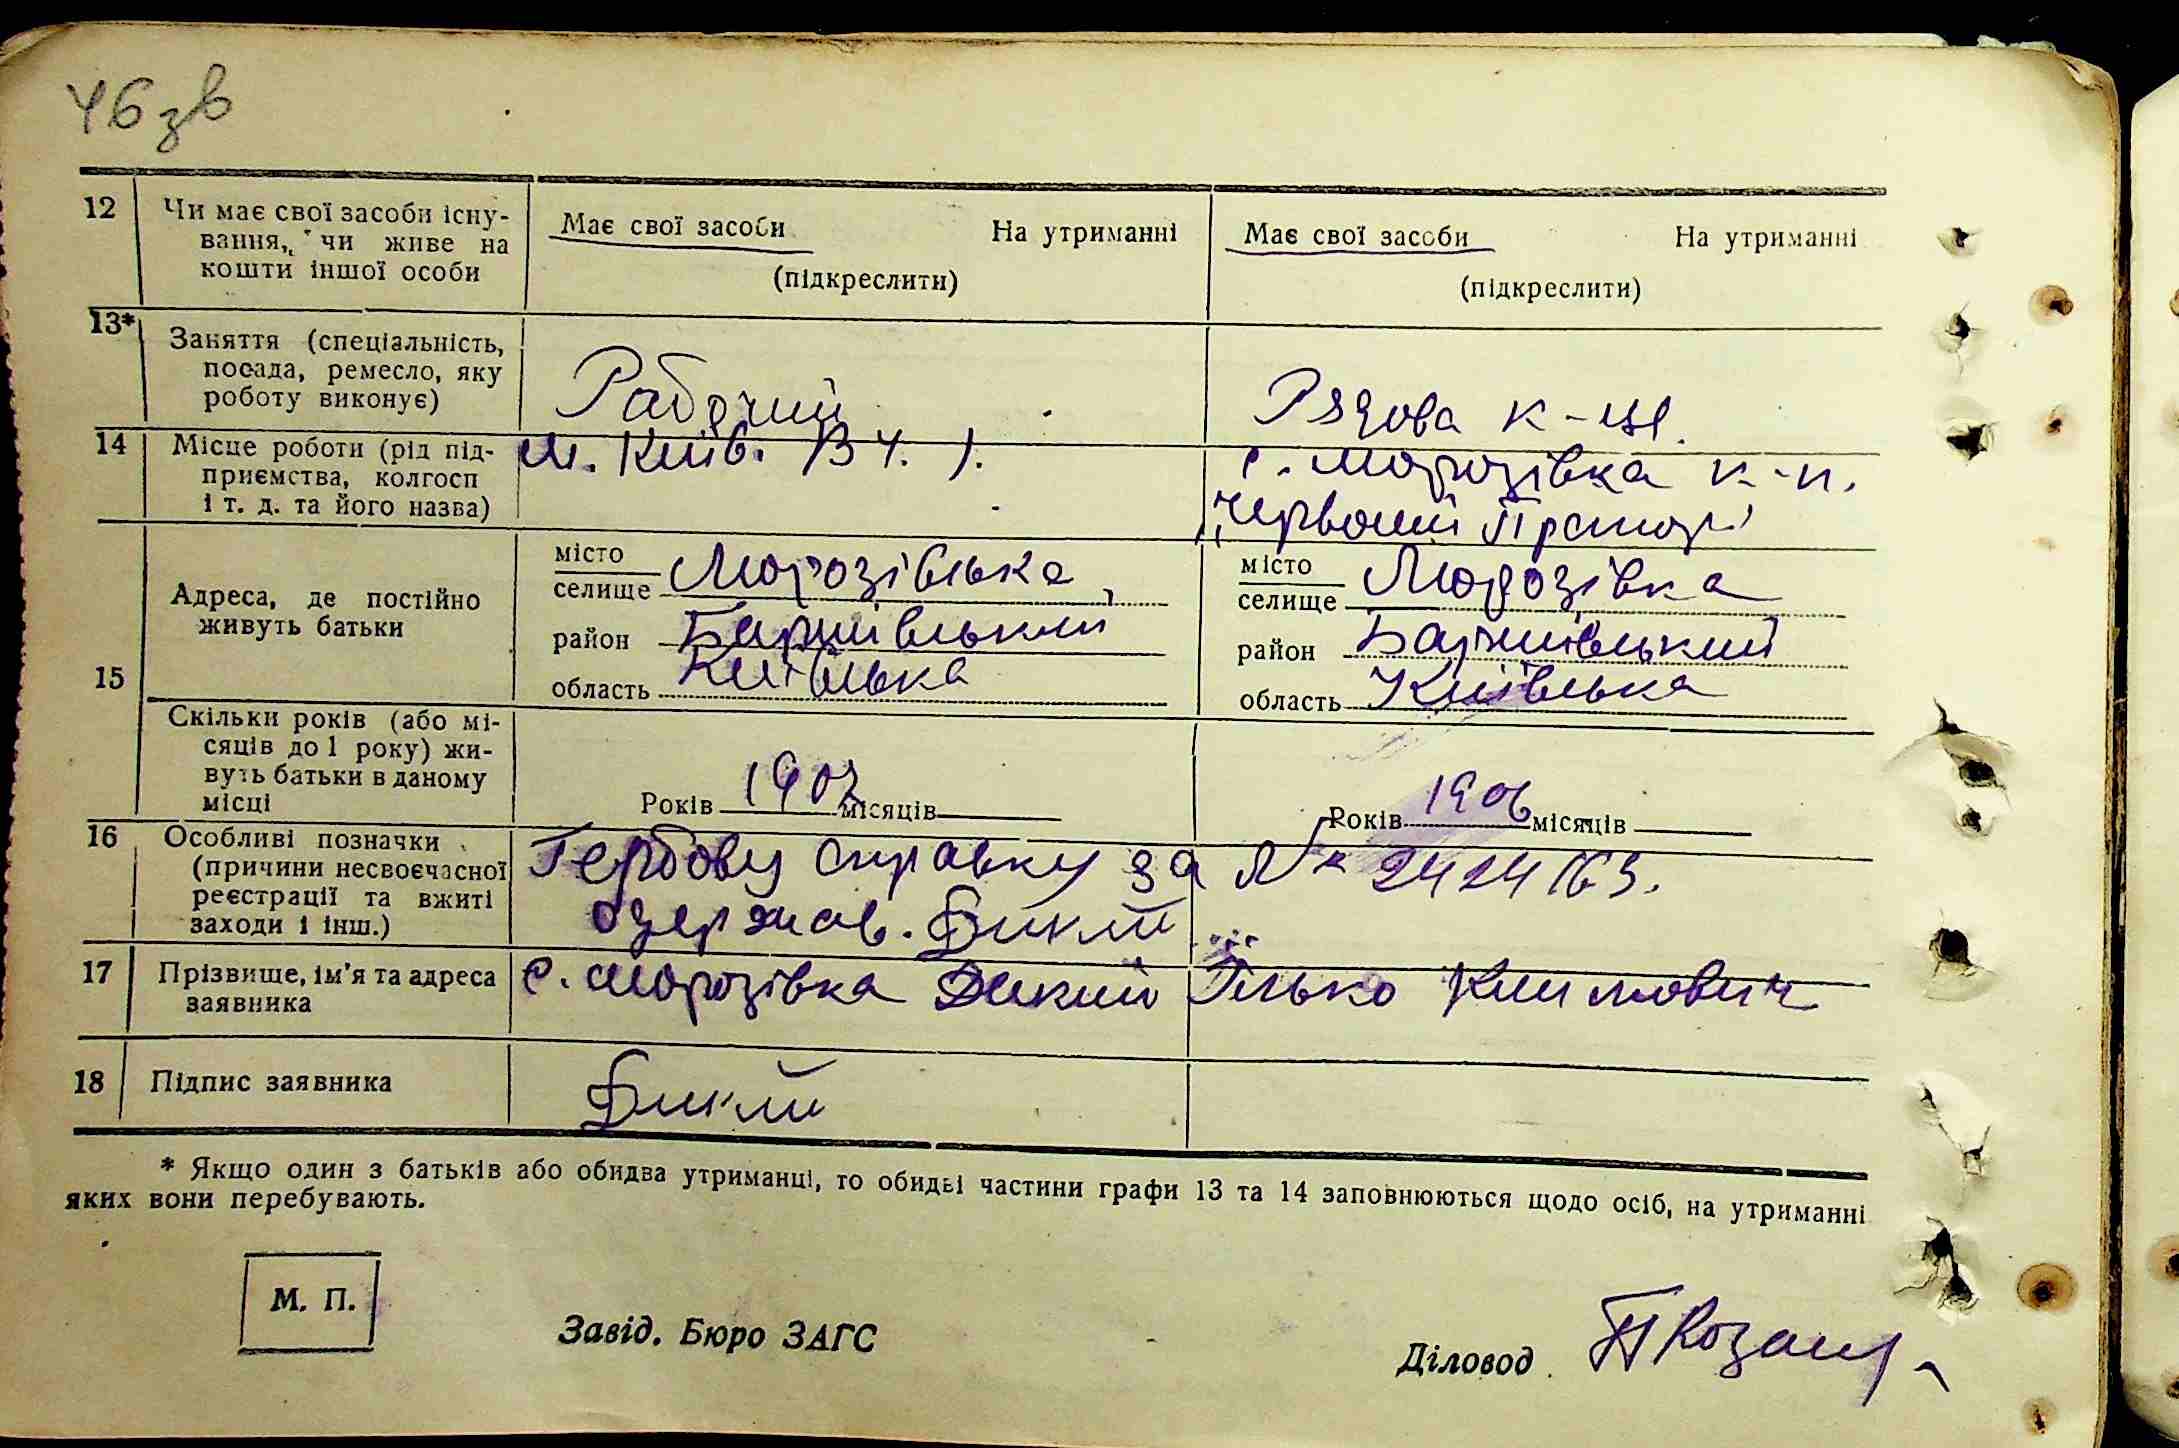 46 зв
12 Чи має свої засоби існу-
вання, чи живе на
кошти іншої особи
Має свої засоби На утриманні
(підкреслити)
Має свої засоби На утриманні
(підкреслити)
13* Заняття (спеціальність,
посада, ремесло, яку
роботу виконує)
Рабочий
Рядова к-ця.
14 Місце роботи (рід під-
приємства, колгосп
і т. д. та його назва)
м. Київ. ВЧ. 1.
с. Морозівка к-п.
"Червоний Прапор"
15 Адреса, де постійно
живуть батьки
місто
селище Морозівська
район Баришівський
область Київська
місто
селище Морозівка
район Баришівський
область Київська
Скільки років (або мі-
сяців до 1 року) жи-
вуть батьки в даному
місці
Років 1907 місяців
Років 1906 місяців
16 Особливі позначки
(причини несвоєчасної
реєстрації та вжиті
заходи і інш.)
Гербову справку за № 2424163.
одержав. Дикий
17 Прізвище, ім'я та адреса
заявника
с. Морозівка Дикий Ілько Климович
18 Підпис заявника
Дикий
* Якщо один з батьків або обидва утриманці, то обидві частини графи 13 та 14 заповнюються щодо осіб, на утриманні
яких вони перебувають.
М. П.
Завід. Бюро ЗАГС
Діловод